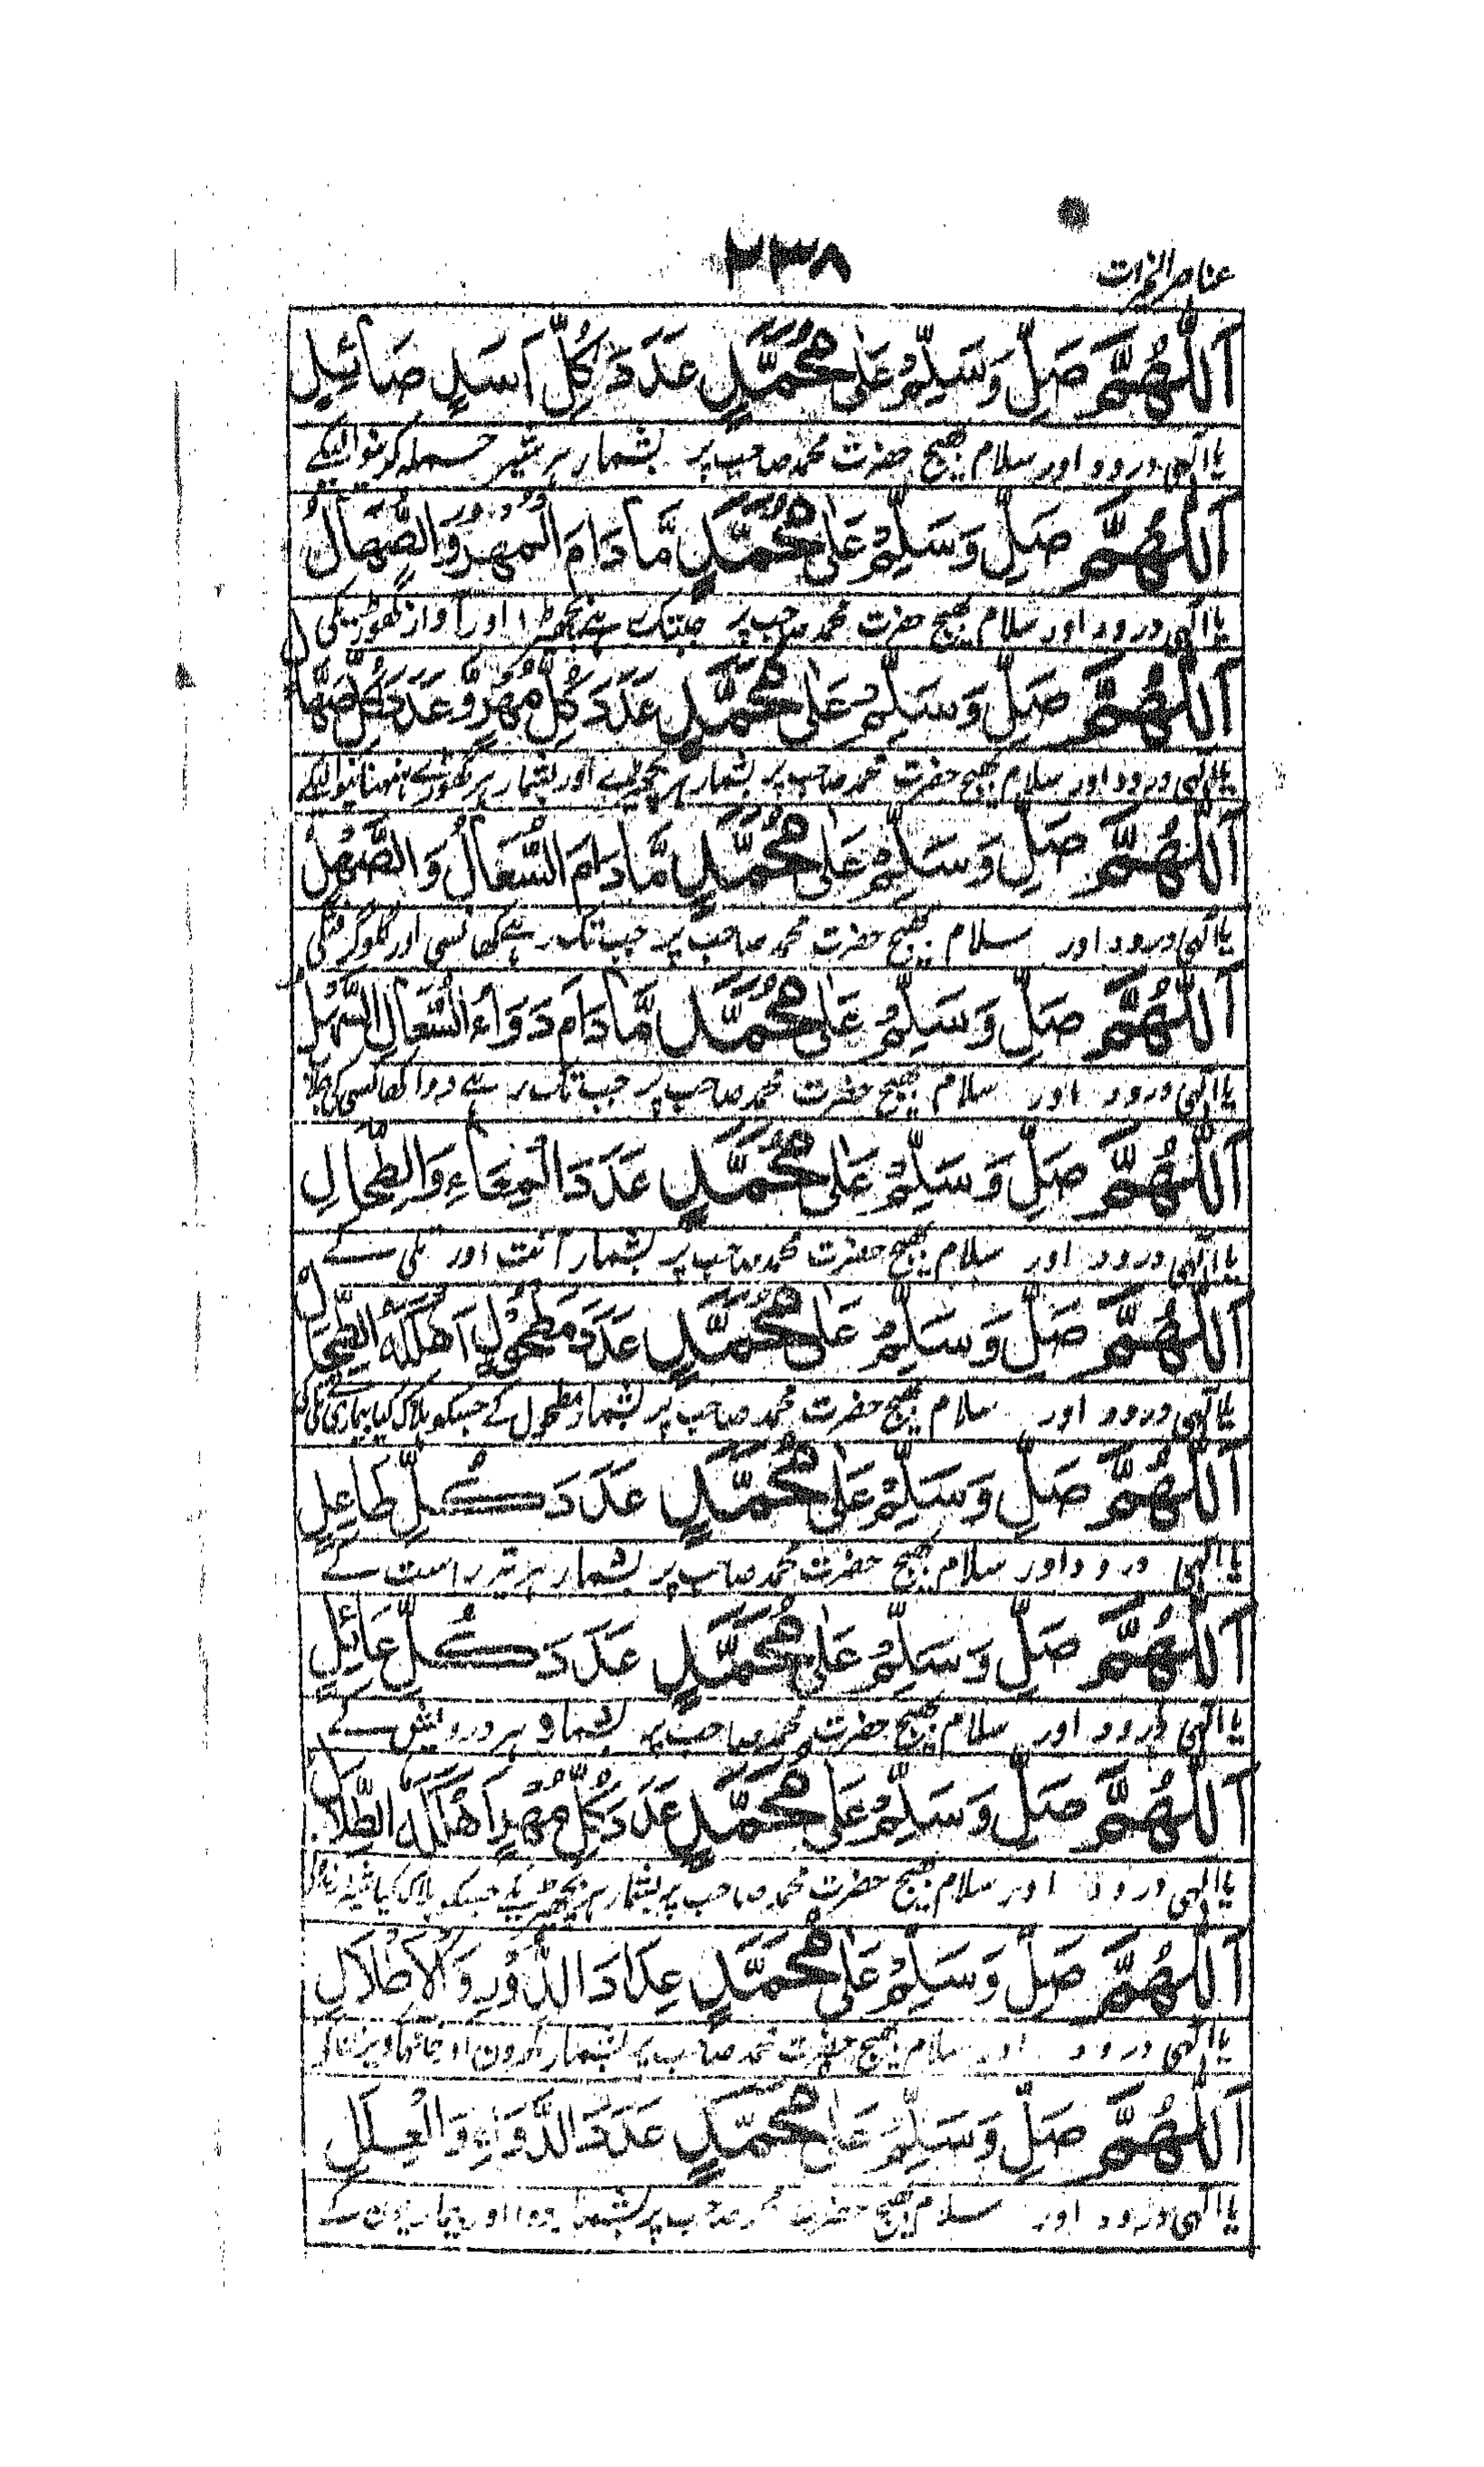 عناصر الخیرات
۲۳۸
اَللّٰهُمَّ صَلِّ وَسَلِّمْ عَلٰی مُحَمَّدٍ عَدَدَ کُلِّ اَسَدٍ صَائِلٍ
یا الٰہی درود اور سلام بھیج حضرت محمد صاحب پر بشمار ہر شیر حملہ کرنیوالیکے
اَللّٰهُمَّ صَلِّ وَسَلِّمْ عَلٰی مُحَمَّدٍ مَّا دَامَ الْمُهْرُ وَالصُّهَالُ
یا الٰہی درود اور سلام بھیج حضرت محمد صاحب پر جبتک رہے بچھڑا اور آواز گھوڑیکی
اَللّٰهُمَّ صَلِّ وَسَلِّمْ عَلٰی مُحَمَّدٍ عَدَدَ کُلِّ مُهْرٍ وَّعَدَدَ کُلِّ صَهَّالٍ
یا الٰہی درود اور سلام بھیج حضرت محمد صاحب پر بشمار ہر بچھڑے اور بشمار ہر گھوڑے ہنہنانیوالیکے
اَللّٰهُمَّ صَلِّ وَسَلِّمْ عَلٰی مُحَمَّدٍ مَّا دَامَ السُّعَالُ وَالصَّهْلُ
یا الٰہی درود اور سلام بھیج حضرت محمد صاحب پر جب تک رہے کھانسی اور گلوگرفتگی
اَللّٰهُمَّ صَلِّ وَسَلِّمْ عَلٰی مُحَمَّدٍ مَّا دَامَ دَوَاءُ السُّعَالِ
یا الٰہی درود اور سلام بھیج حضرت محمد صاحب پر جب تک رہے دوا کھانسی کی
اَللّٰهُمَّ صَلِّ وَسَلِّمْ عَلٰی مُحَمَّدٍ عَدَدَ الْمِعَاءِ وَالطِّحَالِ
یا الٰہی درود اور سلام بھیج حضرت محمد صاحب پر بشمار آنت اور تلی کے
اَللّٰهُمَّ صَلِّ وَسَلِّمْ عَلٰی مُحَمَّدٍ عَدَدَ مَطْحُوْلٍ اَهْلَکَهُ الطِّحَالُ
یا الٰہی درود اور سلام بھیج حضرت محمد صاحب پر بشمار مطحول کے جسکو ہلاک کیا بیماری تلی
اَللّٰهُمَّ صَلِّ وَسَلِّمْ عَلٰی مُحَمَّدٍ عَدَدَ کُلِّ طَاعِلٍ
یا الٰہی درود اور سلام بھیج حضرت محمد صاحب پر بشمار ہر تیر راست کے
اَللّٰهُمَّ صَلِّ وَسَلِّمْ عَلٰی مُحَمَّدٍ عَدَدَ کُلِّ عَائِلٍ
یا الٰہی درود اور سلام بھیج حضرت محمد صاحب پر بشمار ہر درویش کے
اَللّٰهُمَّ صَلِّ وَسَلِّمْ عَلٰی مُحَمَّدٍ عَدَدَ کُلِّ مُهْرٍ اَهْلَکَهُ الطُّلَالُ
یا الٰہی درود اور سلام بھیج حضرت محمد صاحب پر بشمار ہر بچھڑیکے جسکو ہلاک کیا
اَللّٰهُمَّ صَلِّ وَسَلِّمْ عَلٰی مُحَمَّدٍ عِدَادَ الدُّوْرِ وَالْاَطْلَالِ
یا الٰہی درود اور سلام بھیج حضرت محمد صاحب پر بشمار گھرون
اَللّٰهُمَّ صَلِّ وَسَلِّمْ عَلٰی مُحَمَّدٍ عَدَدَ الدَّوَاءِ وَالْعِلَلِ
یا الٰہی درود اور سلام بھیج حضرت محمد صاحب پر بشمار دوا اور بیماریون کے